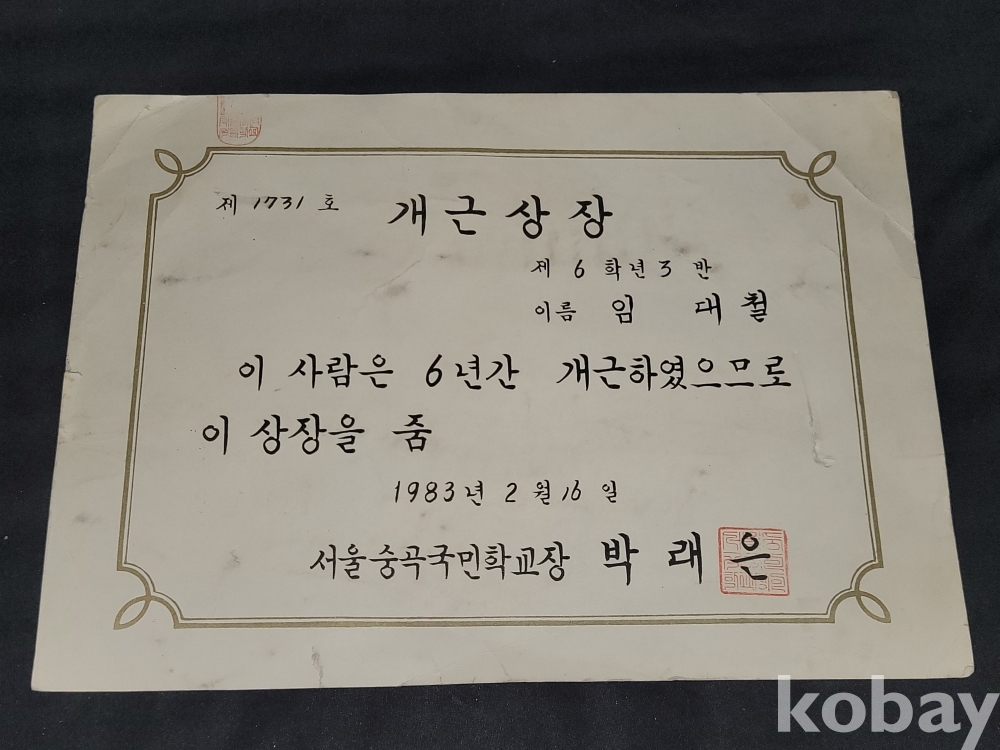 제 1731 호 개근상장
제 6 학년 3 반
이름 임 대철
이 사람은 6년간 개근하였으므로
이 상장을 줌
1983년 2월 16일
서울중곡국민학교장 박래은
kobay